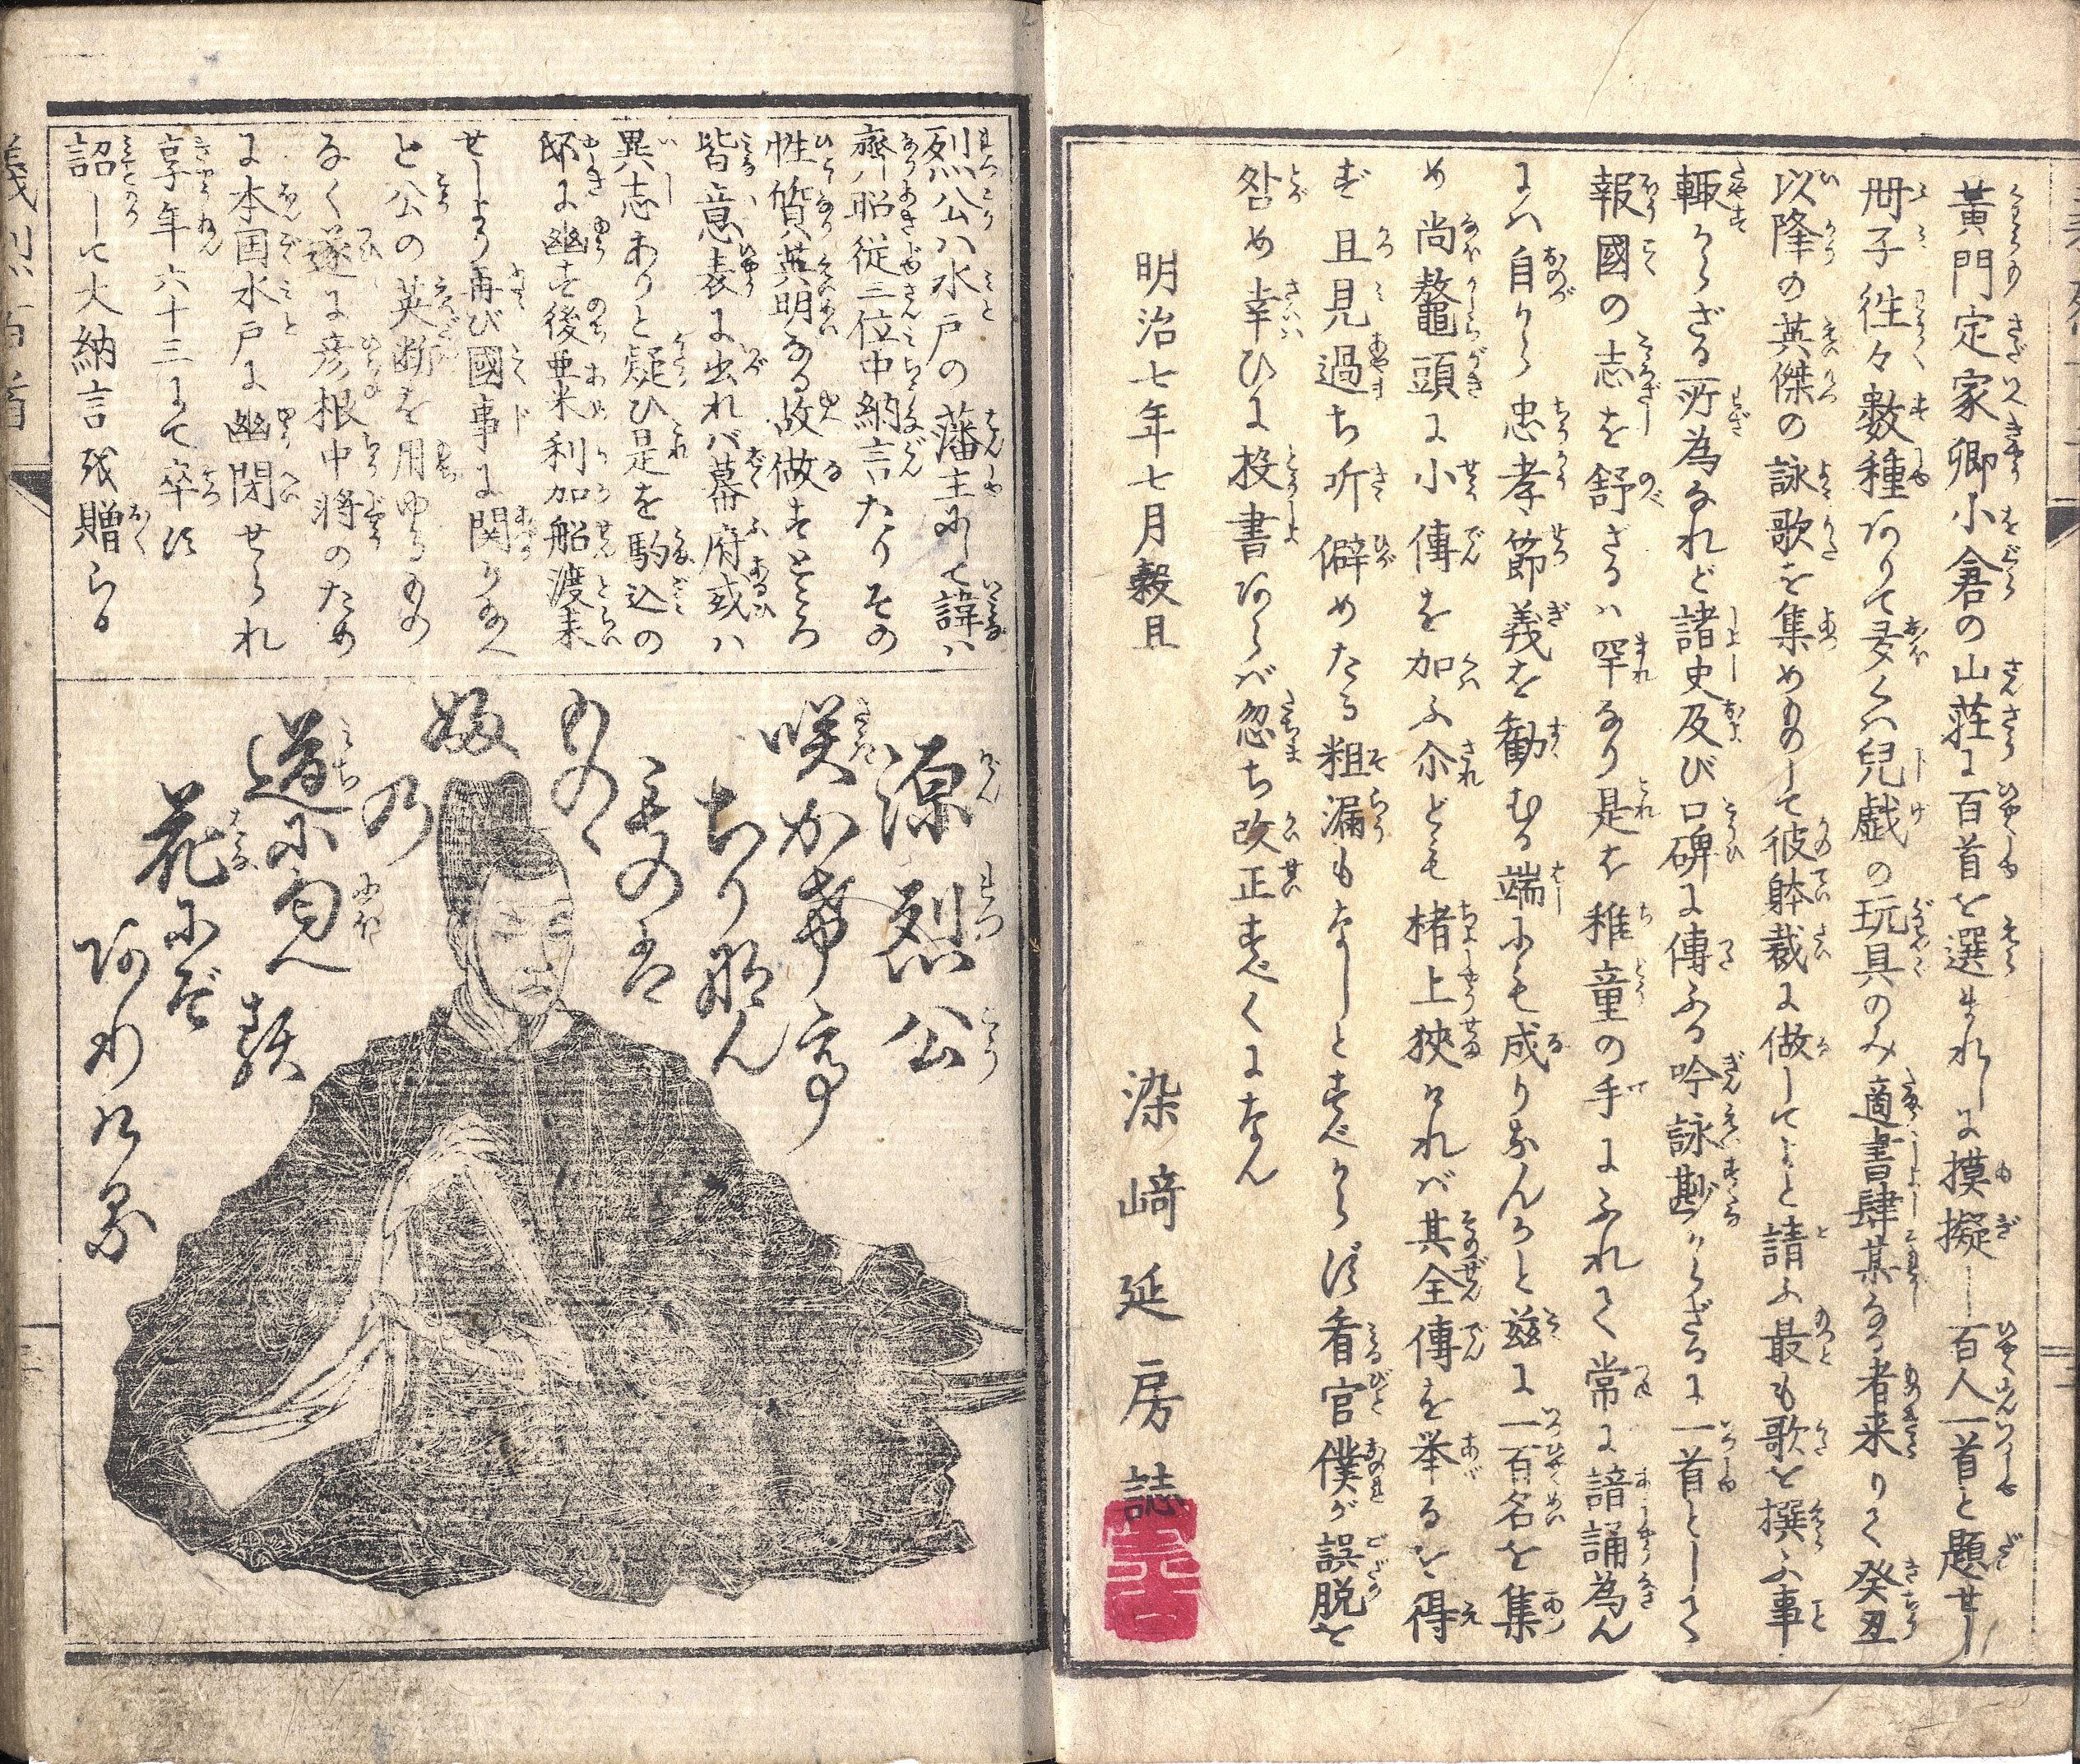 黄門定家卿小倉の山荘に百首を選まれしに摸擬し百人一首と題せし
冊子徃々数種ありて多くハ兒戯の玩具のみ適書肆某なる者来りて癸丑
以降の英傑の詠歌を集めものして彼躰裁に做してよと請ふ最も歌を撰ふ事
輙からざる所為なれど諸史及び口碑に傳ふる吟詠尠からざるに一首としして
報國の志を舒ざるハ罕なり是を稚童の手にふれて常に諳誦為ん
にハ自から忠孝節義を勧むる端にも成りなんかと茲に一百名を集
め尚鼇頭に小傳を加ふ尒ども楮上狹けれバ其全傳を挙るを得
ず且見過ち听僻めたる粗漏もなしとすべからず看官僕が誤脱を
咎め幸ひに投書あらバ忽ち改正すべくになん
明治七年七月穀旦
染﨑延房誌
烈公ハ水戸の藩主にして諱ハ
齊昭従三位中納言たりその
性質英明なる故做すところ
皆意表に出れバ幕府或ハ
異志ありと疑ひ是を駒込の
邸に幽す後亜米利加船渡来
せしより再び國事に関り給へ
と公の英断を用ゆるもの
なく遂に彦根中将のため
に本国水戸に幽閉せられ
享年六十三にて卒す
詔して大納言を贈らる
源烈公
咲かすとて
ちりなん
ものゝ
婦の
道に匂へる
花にぞ
ありける